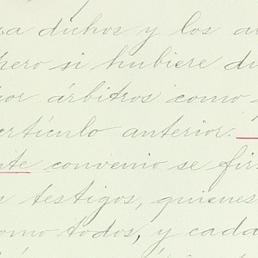 dichos y los
pero si hubiere
por árbitros como
artículo anterior.
convenio se
testigos, quienes
como todos, y cada